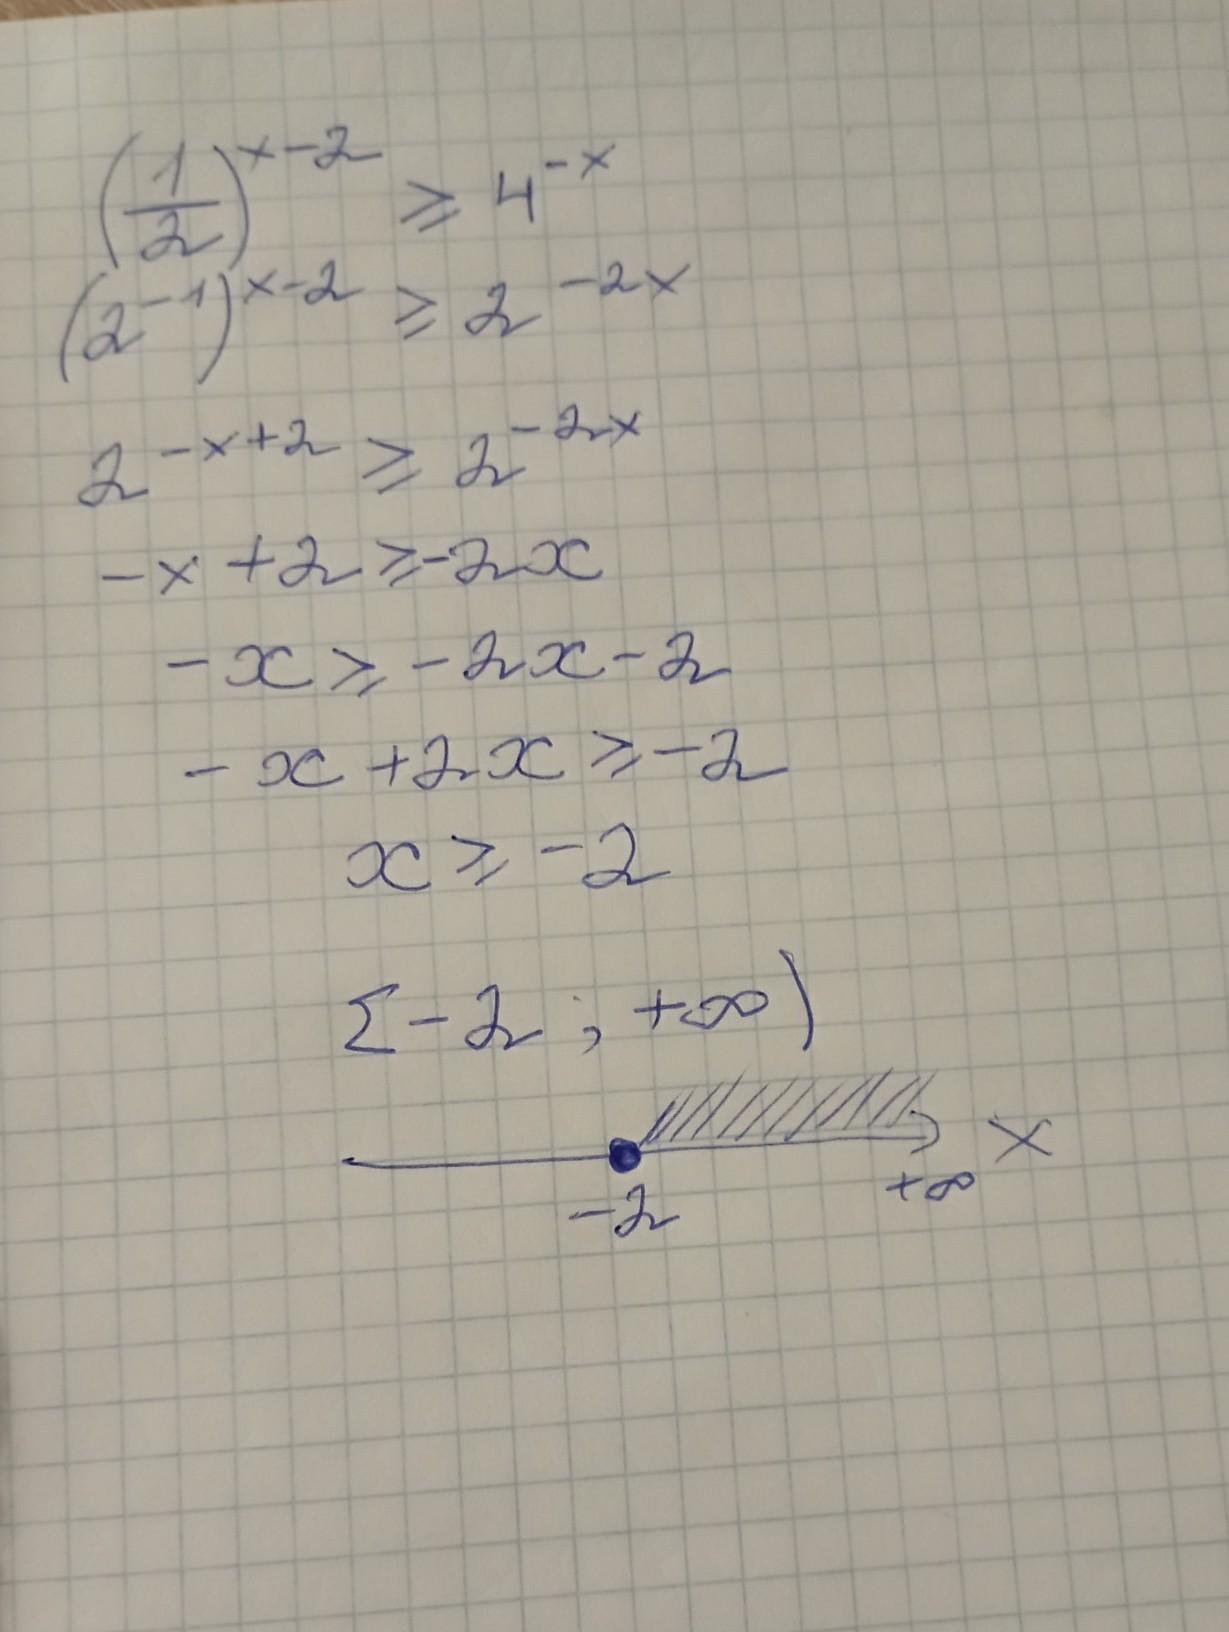 (1/2)^(x-2) ⩾ 4^(-x)
(2^(-1))^(x-2) ⩾ 2^(-2x)
2^(-x+2) ⩾ 2^(-2x)
-x+2⩾-2x
-x⩾-2x-2
-x+2x⩾-2
x⩾-2
[-2; +∞)
x
-2 +∞